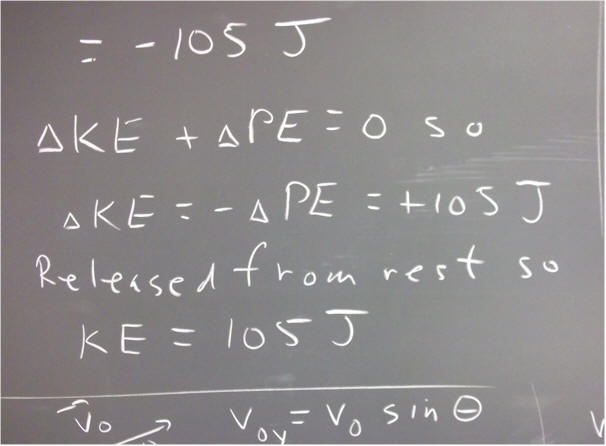 = -105 J
ΔKE + ΔPE = 0 so
ΔKE = -ΔPE = +105 J
Released from rest so
KE = 105 J
V₀ V₀y = V₀ sin θ
V